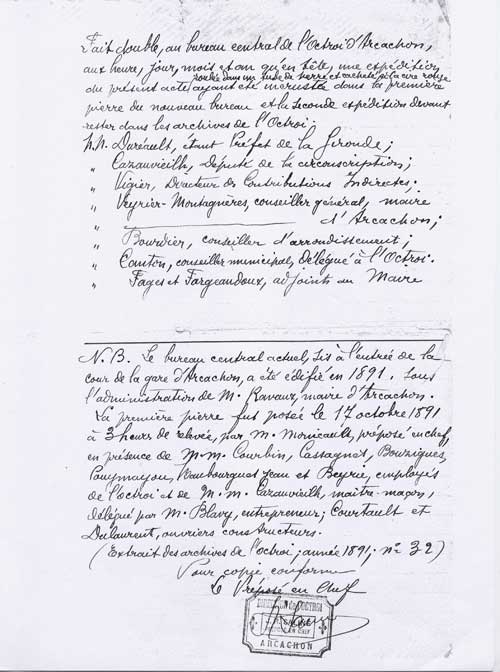 Fait double, au bureau central de l'Octroi d'Arcachon,
aux heure, jour, mois et an qu'en tête, une expédition
roulée dans un tube de verre et cacheté à la cire rouge
du présent acte ayant été incrustée dans la première
pierre du nouveau bureau et la seconde expédition devant
rester dans les archives de l'Octroi.
M.M. Duréault, étant Préfet de la Gironde;
" Cazauvieilh, Député de la circonscription;
" Vigier, Directeur des Contributions Indirectes;
" Veyrier-Montagnères, conseiller général, maire
d'Arcachon;
" Bourdier, conseiller d'arrondissement;
" Canton, conseiller municipal, délégué à l'Octroi.
" Fages et Fargeaudoux, adjoints au Maire
N.B. Le bureau central actuel, sis à l'entrée de la
cour de la gare d'Arcachon, a été édifié en 1891. sous
l'administration de M. Ravaux, maire d'Arcachon.
La première pierre fut posée le 17 octobre 1891
à 3 heures de relevée, par M. Monicault, préposé en chef,
en présence de M.M. Courbin, Cassagnet, Bouzigues,
Pouymayou, Vaubourguet Jean et Beyrie, employés
de l'octroi et de M.M. Cazauvieilh, maître-maçon,
délégué par M. Blavy, entrepreneur; Courtault et
Dulaurent, ouvriers constructeurs.
(Extrait des archives de l'octroi; année 1891, n° 32)
Pour copie conforme
Le Préposé en Chef
DIRECTION de l'OCTROI
EN CHEF
ARCACHON